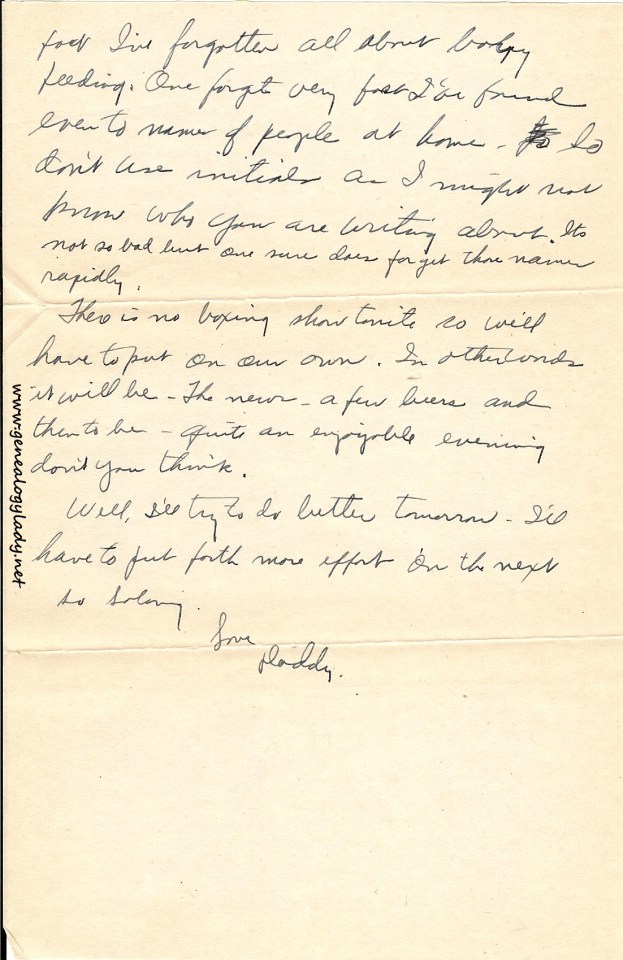 fact I've forgotten all about baby
feeding. One forgets very fast I've found
even to names of people at home - So
don't use initials as I might not
know who you are writing about. Its
not so bad but one sure does forget those names
rapidly.
There is no boxing show tonite so we'll
have to put on our own. In otherwords
it will be - The news - a few beers and
then to be - quite an enjoyable evening
don't you think.
Well, I'll try to do better tomorrow - I'll
have to put forth more effort on the next
so so long.
Love
Daddy.
www.genealogylady.net